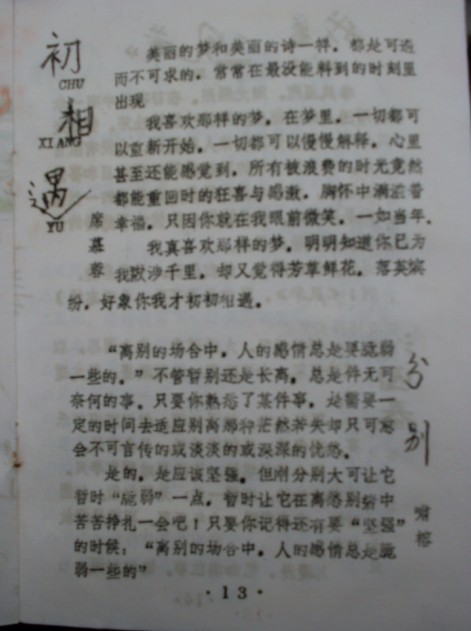 初相遇
CHU
XIANG
YU
席慕蓉
美丽的梦和美丽的诗一样，都是可遇
而不可求的，常常在最没能料到的时刻里
出现
我喜欢那样的梦，在梦里，一切都可
以重新开始，一切都可以慢慢解释，心里
甚至还能感觉到，所有被浪费的时光竟然
都能重回时的狂喜与感激，胸怀中满溢着
幸福，只因你就在我眼前微笑，一如当年。
我真喜欢那样的梦，明明知道你已为
我跋涉千里，却又觉得芳草鲜花，落英缤
纷，好象你我才初初相遇。
分别
啸榕
“离别的场合中，人的感情总是要脆弱
一些的。”不管暂别还是长离，总是件无可
奈何的事，只要你熟悉了某件事，是需要一
定的时间去适应别离那种茫然若失却只可意
会不可言传的或淡淡的或深深的忧愁。
是的，是应该坚强，但刚分别大可让它
暂时“脆弱”一点，暂时让它在离愁别绪中
苦苦挣扎一会吧！只要你记得还有要“坚强”
的时候：“离别的场合中，人的感情总是脆
弱一些的”
·13·